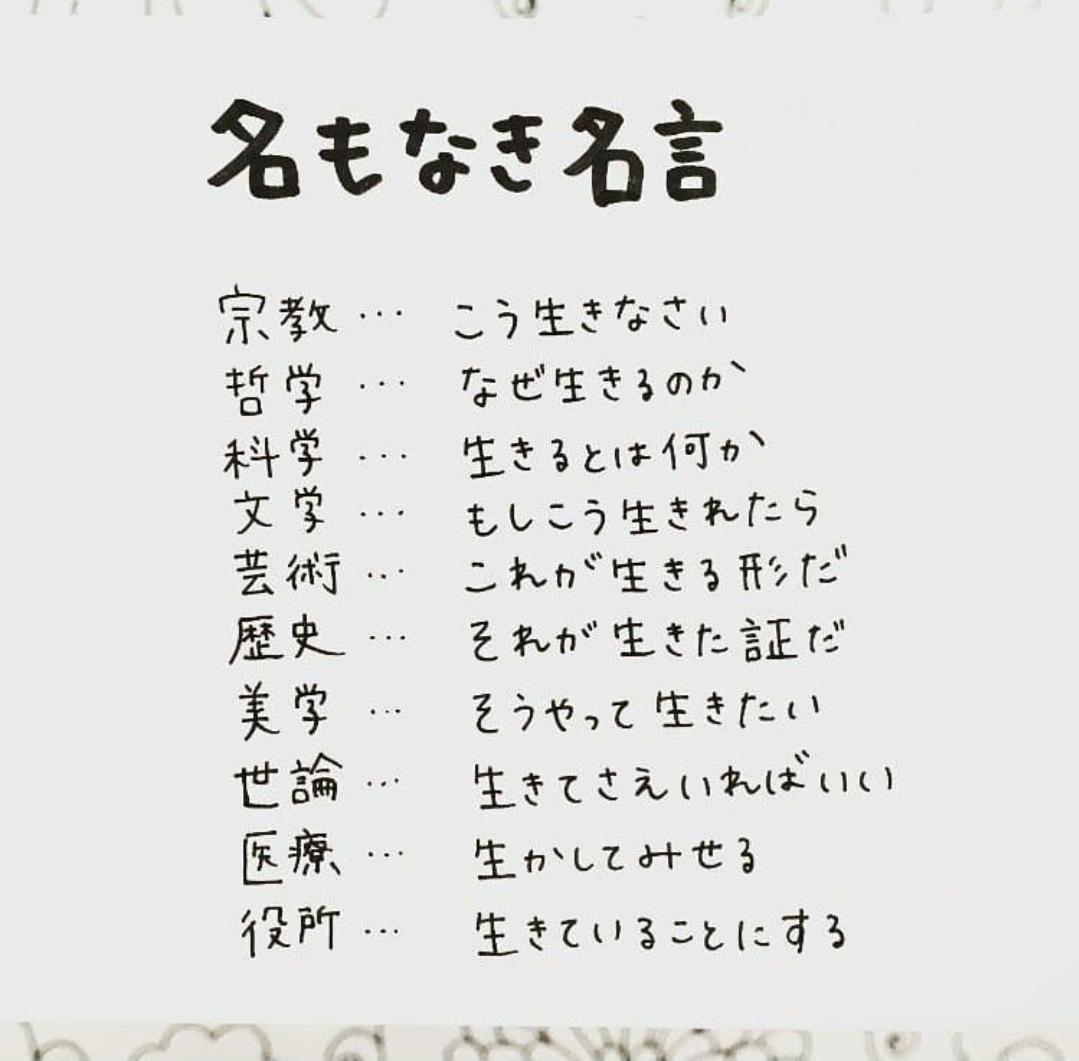 名もなき名言
宗教… こう生きなさい
哲学… なぜ生きるのか
科学… 生きるとは何か
文学… もしこう生きれたら
芸術… これが生きる形だ
歴史… それが生きた証だ
美学… そうやって生きたい
世論… 生きてさえいればいい
医療… 生かしてみせる
役所… 生きていることにする